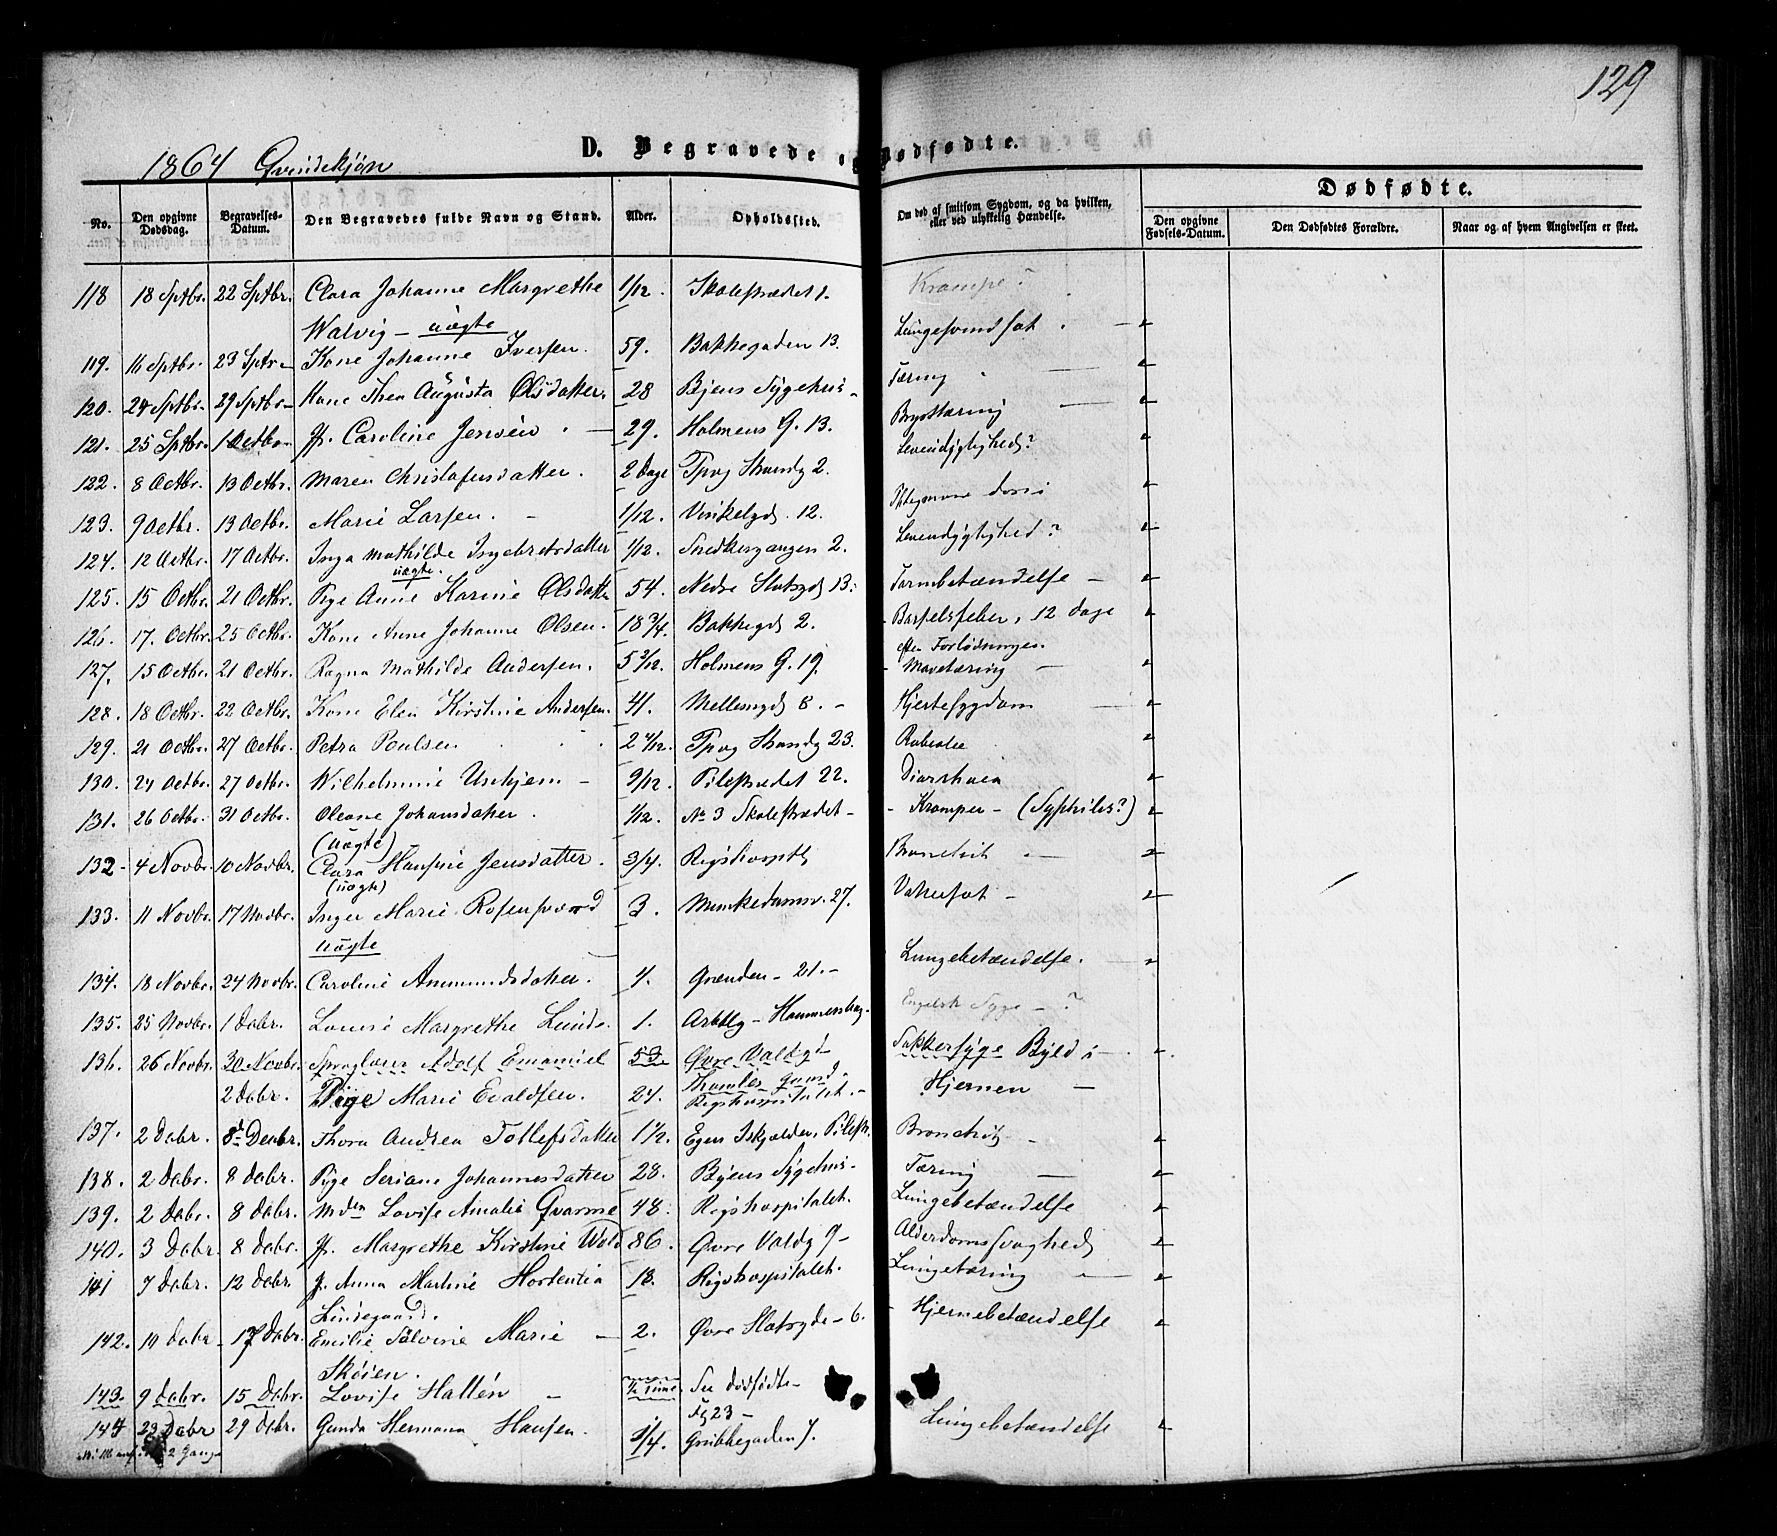 129
1864 Qvindekjøn
D. Begravede og Dødfødte.
No. Den opgivne Dødsdag. Begravelses-Datum. Den Begravedes fulde Navn og Stand. Alder. Opholdssted. Om død af smitsom Sygdom, og da hvilken, eller ved ulykkelig Hændelse. Dødfødte.
Den opgivne Fødsels-Datum. Den Dødfødtes Forældre. Naar og af hvem Angivelsen er skeet.
118 18 Sptbr. 22 Sptbr. Clara Johanne Margrethe 1/12 Skolestrædet 1. Krampe?
Walvig – uægte
119. 16 Sptbr. 23 Sptr. Kone Johanne Iversen. 59. Bakkegaden 13. Lungesvindsot
120. 24 Sptbr. 29 Sptbr. Kone Thea Augusta Olsdatter. 28 Byens Sygehus Tæring
121. 25 Sptbr. 1 Octbr. Jf. Caroline Jensen 29. Holmens G. 13. Brysttæring
122. 8 Octbr. 13 Octbr. Maren Christofersdatter. 2 Dage Tpvg Strandg 2. Levendygtighed?
123. 9 Octbr. 13 Octbr. Marie Larsen. 1/12. Vinkelgd. 12.
124. 12 Octbr. 17 Octbr. Inga Mathilde Ingebretsdatter 1/12. Snedkergangen 2. Levendygtighed?
uægte.
125. 15 Octbr. 21 Octbr. Pige Anne Karine Olsdatter 54. Nedre Slotsgd 13. Tarmbetændelse –
126. 17. Octbr. 25 Octbr. Kone Anne Johanne Olsen. 18 3/4. Bakkegd 2. Barselsfeber, 12 dage
efter Forløsningen.
127. 15 Octbr. 21 Octbr. Ragna Mathilde Andersen. 5 3/12. Holmens G. 19. Mavetæring
128. 18 Octbr. 22 Octbr. Kone Elen Kirstine Andersen. 41. Mellemgd 8. – Hjertesygdom
129. 21 Octbr. 27 Octbr. Petra Poulsen 2 4/12. Tpvg Strandg 23.
130. 24 Octbr. 27 Octbr. Wilhelmine – 9/12. Pilestrædet 22. Diarrhoea
131. 26 Octbr. 31 Octbr. Oleane Johansdatter. 1/12. No 3 Skolestrædet – Kramper – (Syphilis?)
(uægte)
132 4 Novbr. 10 Novbr. Clara Hansine Jensdatter. 3/4. Rigshospit. Bronchit
(uægte)
133. 11 Novbr. 17 Novbr. Inger Marie Rosensværd 3. Munkedamsv. 27. Vatersot –
uægte
134. 18 Novbr. 24 Novbr. Caroline Ammundsdatter. 4. Grønden – 21. – Lungebetændelse.
135. 25 Novbr. 1 Dcbr. Louise Margrethe Lunds. 1. Hammersborg. Engelsk Syge – ?
136. 26 Novbr. 30 Novbr. Adolf Emanuel 53. Øvre Voldgd Sukkersyge Byld i
2 Dcbr. Pige Marie Evaldsen. 24. Rigshospitalet. – Hjernen –
137. 2 Dcbr. 8 Decbr. Thora Andrea Tollefsdatter 1 1/2. Pilestr. Bronchit
138. 2 Dcbr. 8 Dcbr. Pige Seriane Johannesdatter 28. Byens Sygehus Tæring
139. 2 Dcbr. 8 Dcbr. Mdm Lovise Amalie Qvarme 48. Rigshospitalet. Lungebetændelse
140. 3 Dcbr. 8 Dcbr. Jf. Margrethe Kirstine Wold 86. Øvre Voldg 9 – Alderdomssvaghed
141 7 Dcbr. 12 Dcbr. J. Anna Martine Hortentia 18. Rigshospitalet. Lungetæring
Lindegaard.
142. 14 Dcbr. 17 Dcbr. Emilie Sølvine Marie – 2. Øvre Slotsgde – 6. Hjernebetændelse
Skøien.
143. 9 Dcbr. 15 Dcbr. Lovise Hallén – 1/2 Time. See dødfødte –
23 –
144 23 Dcbr 29 Dcbr. Gunda Hermana Hansen. 3/4. Grubbegaden 7. Lungebetændelse